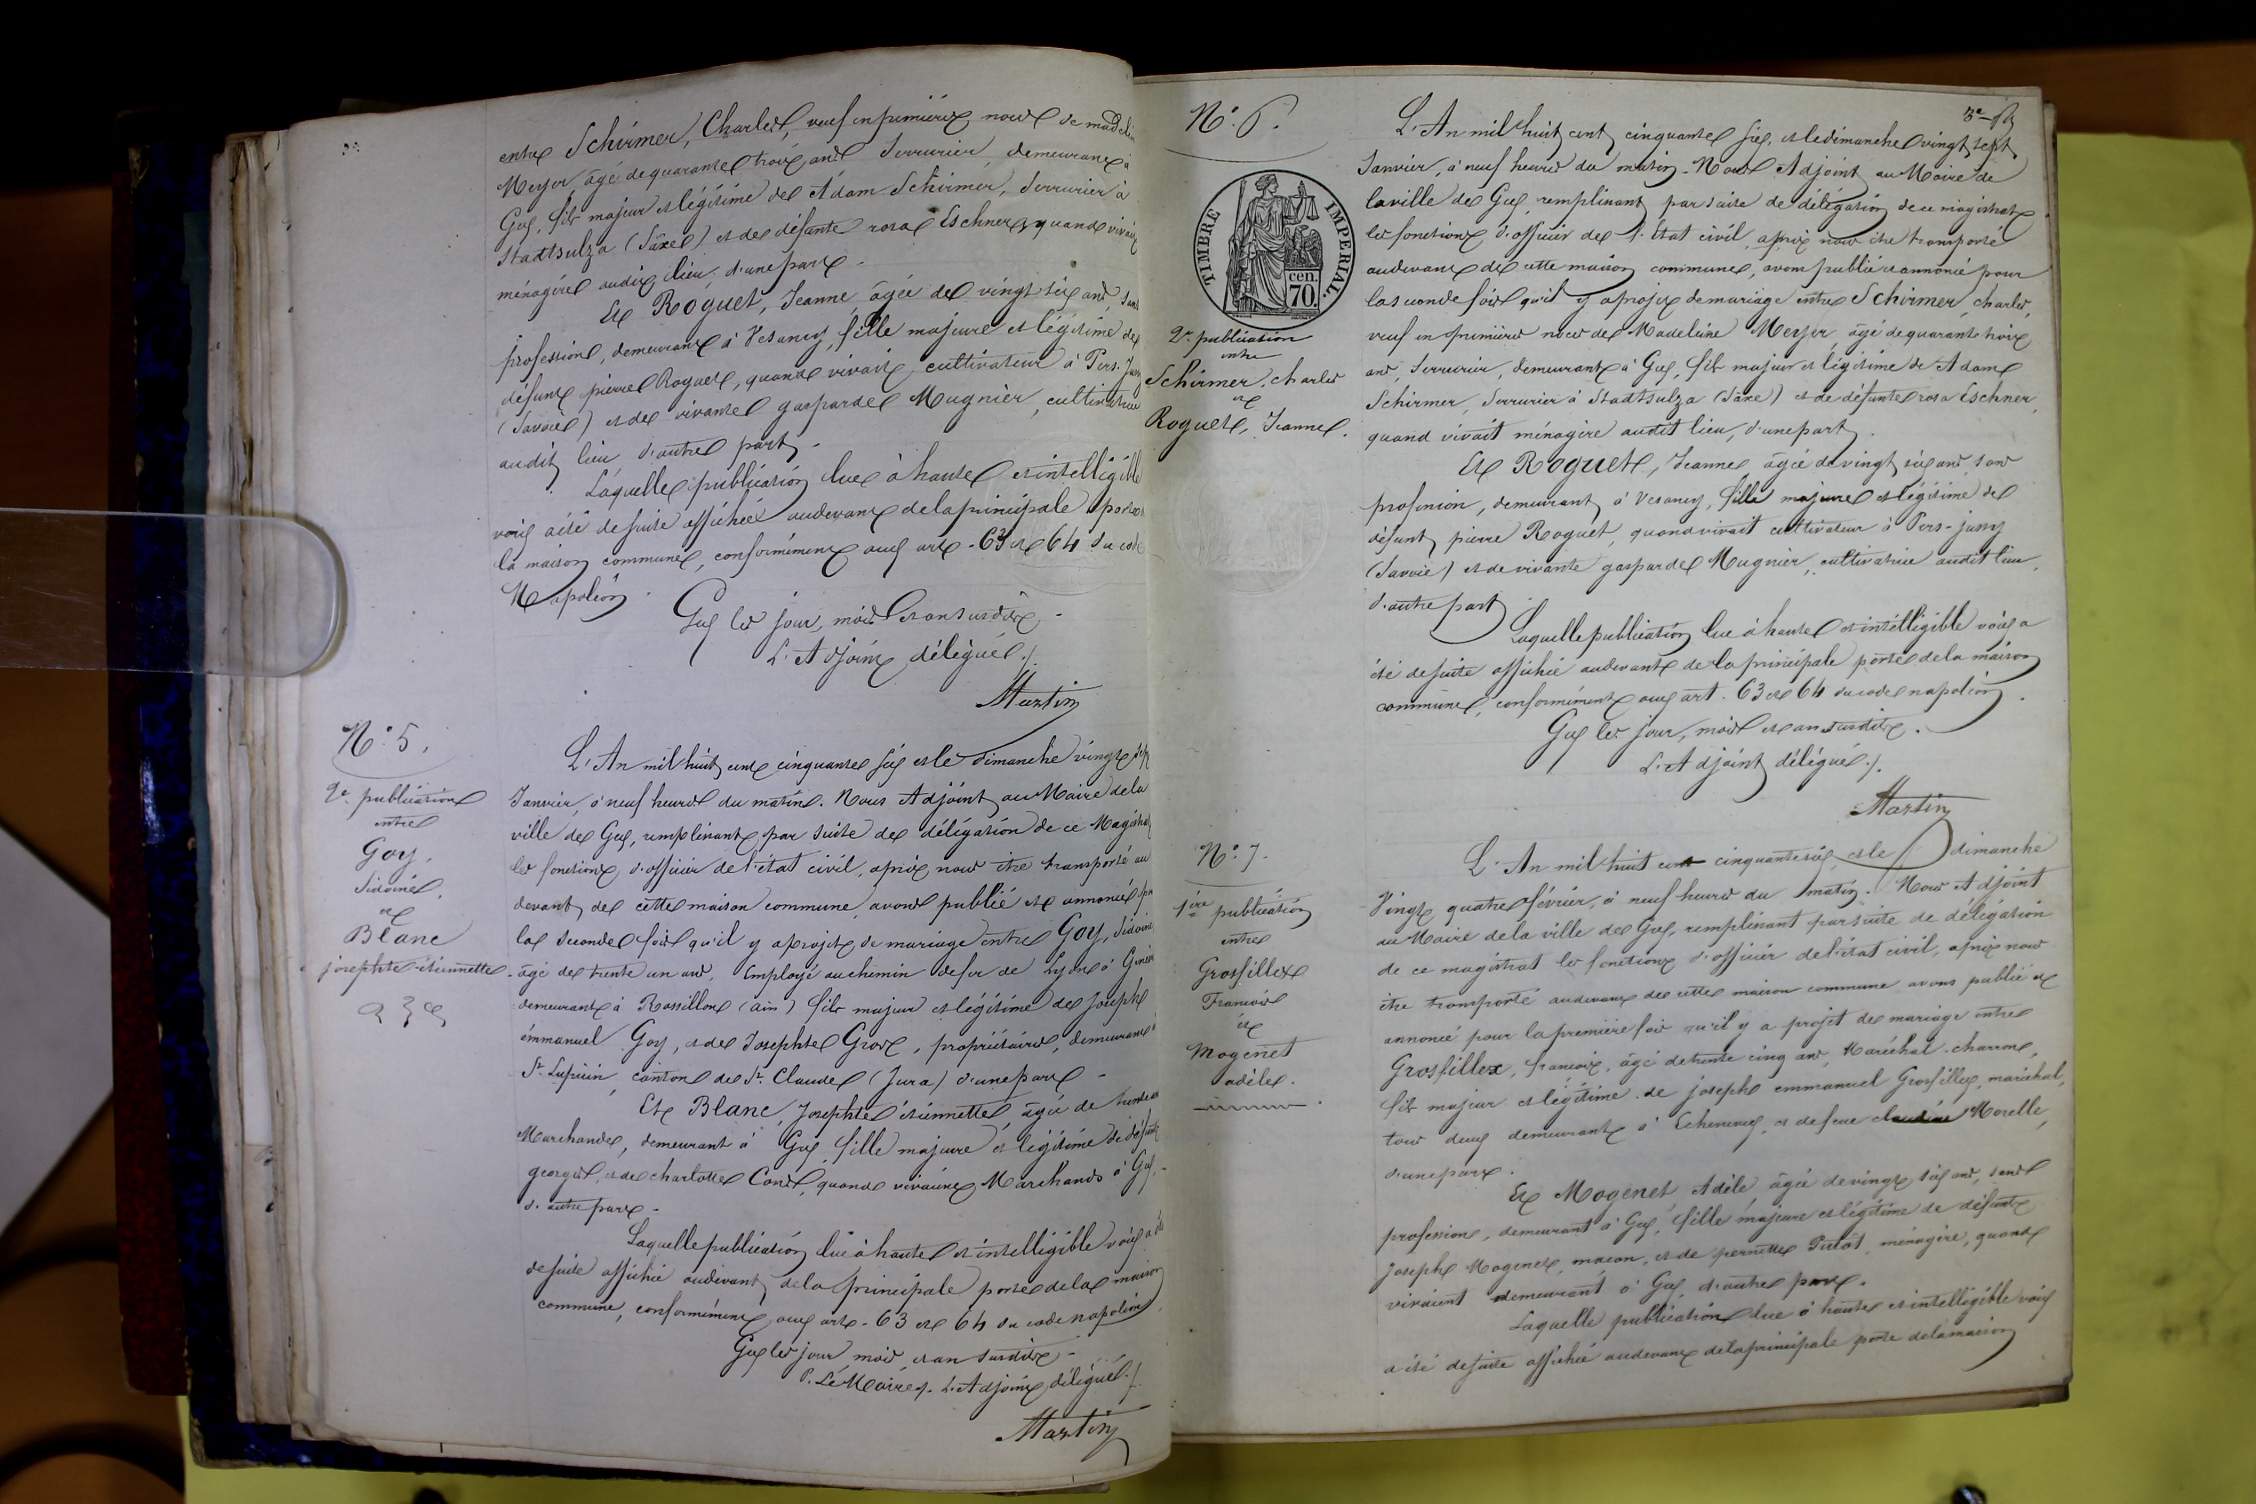 entre Schirmer, Charles, veuf en premières noces de Madeleine
Meyer, âgé de quarante trois ans Serrurier, demeurant à
Gex, fils majeur et légitime de Adam Schirmer, Serrurier à
Stadtsulza (Saxe) et de défunte rosa Eschner, quand vivait
ménagère audit lieu, d'une part -
Et Roguet, Jeanne, âgée de vingt six ans, sans
profession, demeurant à Vesancy, fille majeure et légitime de
défunt pierre Roguet, quand vivait cultivateur à Pers-Jussy
(Savoie) et de vivante gasparde Mugnier, cultivatrice
audit lieu d'autre part -
Laquelle publication lue à haute et intelligible
voix a été de suite affichée au devant de la principale porte de
la maison commune, conformément aux art. 63 et 64 du code
Napoléon.
Gex les jour, mois et an susdits -
L'Adjoint délégué ./.
Martin
N° 5.
2e publication
entre
Goy,
Sidoine,
et
Blanc
josephte étiennette
L'An mil huit cent cinquante six et le dimanche vingt sept
Janvier, à neuf heures du matin. Nous Adjoint au Maire de la
ville de Gex, remplissant par suite de délégation de ce Magistrat
les fonctions d'officier de l'état civil, après nous être transporté au
devant de cette maison commune, avons publié et annoncé pour
la seconde fois qu'il y a projet de mariage entre Goy, Sidoine
âgé de trente un ans, Employé au chemin de fer de Lyon à Genève
demeurant à Rossillon (ain) fils majeur et légitime de Joseph
émmanuel Goy, et de Josephte Gros, propriétaires, demeurant à
St Lupicin, canton de St Claude (Jura) d'une part -
Et Blanc, Josephte étiennette, âgée de trente ans
Marchande, demeurant à Gex, fille majeure et légitime de défunts
georges, et de charlotte Conod, quand vivaient Marchands à Gex,
d'autre part -
Laquelle publication lue à haute et intelligible voix a été
de suite affichée au devant de la principale porte de la maison
commune, conformément aux art. 63 et 64 du code napoléon.
Gex les jour, mois, et an susdits -
P. Le Maire, L'Adjoint délégué ./.
Martin
3e
N° 6.
TIMBRE IMPERIAL.
cen.
70.
2e publication
entre
Schirmer, charles
et
Roguet, Jeanne.
L'An mil huit cent cinquante six, et le dimanche vingt sept
Janvier, à neuf heures du matin. Nous Adjoint au Maire de
la ville de Gex, remplissant par suite de délégation de ce magistrat
les fonctions d'officier de l'état civil, après nous être transporté
au devant de cette maison commune, avons publié et annoncé pour
la seconde fois qu'il y a projet de mariage entre Schirmer, charles,
veuf en premières noces de Madeleine Meyer, âgé de quarante trois
ans, Serrurier, demeurant à Gex, fils majeur et légitime de Adam
Schirmer, Serrurier à Stadtsulza (Saxe) et de défunte rosa Eschner,
quand vivait ménagère audit lieu, d'une part.
Et Roguet, Jeanne, âgée de vingt six ans, sans
profession, demeurant à Vesancy, fille majeure et légitime de
défunt pierre Roguet, quand vivait cultivateur à Pers-jussy
(Savoie) et de vivante gasparde Mugnier, cultivatrice audit lieu,
d'autre part.
Laquelle publication lue à haute et intelligible voix a
été de suite affichée au devant de la principale porte de la maison
commune, conformément aux art. 63 et 64 du code napoléon.
Gex les jour, mois et an susdits.
L'Adjoint délégué ./.
Martin
N° 7.
1ère publication
entre
Grosfillex
Francois
et
Mogenet
adèle.
L'An mil huit cent cinquante six, et le dimanche
Vingt quatre février, à neuf heures du matin. Nous Adjoint
au Maire de la ville de Gex, remplissant par suite de délégation
de ce magistrat les fonctions d'officier de l'état civil, après nous
être transporté au devant de cette maison commune avons publié et
annoncé pour la première fois qu'il y a projet de mariage entre
Grosfillex, francois, âgé de trente cinq ans, Maréchal-charron,
fils majeur et légitime de joseph emmanuel Grosfillex, maréchal,
tous deux demeurant à Echenevex, et de feue claudine Morelle,
d'une part.
Et Mogenet Adèle, âgée de vingt six ans, sans
profession, demeurant à Gex, fille majeure et légitime de défunts
joseph Mogenet, macon, et de pernette ménagère, quand
vivaient demeurant à Gex, d'autre part.
Laquelle publication lue à haute et intelligible voix
a été de suite affichée au devant de la principale porte de la maison